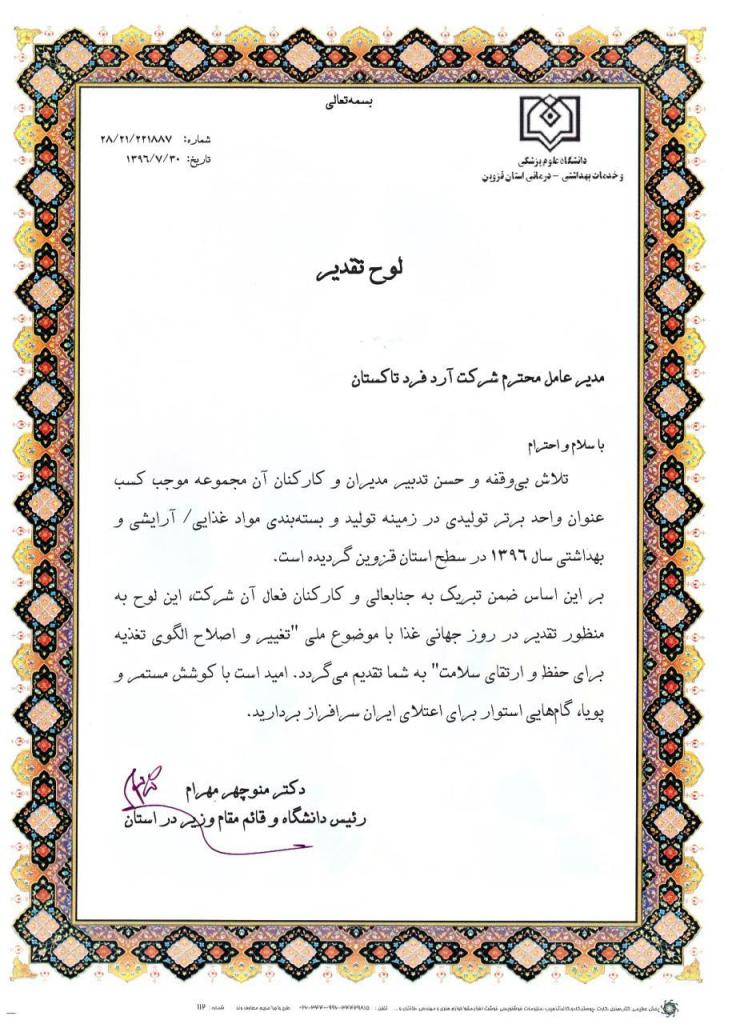 بسمه‌تعالی
دانشگاه علوم پزشکی
و خدمات بهداشتی - درمانی استان قزوین
شماره: ۲۸/۲۱/۲۲۱۸۸۷
تاریخ: ۱۳۹۶/۷/۳۰
لوح تقدیر
مدیر عامل محترم شرکت آرد فرد تاکستان
با سلام و احترام
تلاش بی‌وقفه و حسن تدبیر مدیران و کارکنان آن مجموعه موجب کسب
عنوان واحد برتر تولیدی در زمینه تولید و بسته‌بندی مواد غذایی/ آرایشی و
بهداشتی سال ۱۳۹۶ در سطح استان قزوین گردیده است.
بر این اساس ضمن تبریک به جنابعالی و کارکنان فعال آن شرکت، این لوح به
منظور تقدیر در روز جهانی غذا با موضوع ملی "تغییر و اصلاح الگوی تغذیه
برای حفظ و ارتقای سلامت" به شما تقدیم می‌گردد. امید است با کوشش مستمر و
پویا، گام‌هایی استوار برای اعتلای ایران سرافراز بردارید.
دکتر منوچهر مهرام
رئیس دانشگاه و قائم مقام وزیر در استان